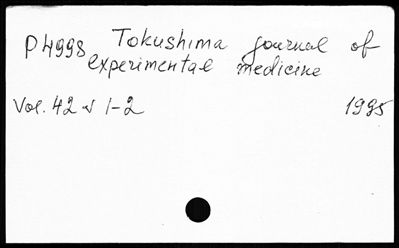 P4998 Tokushima journal of
experimental medicine
Vol. 42 № 1-2 1995